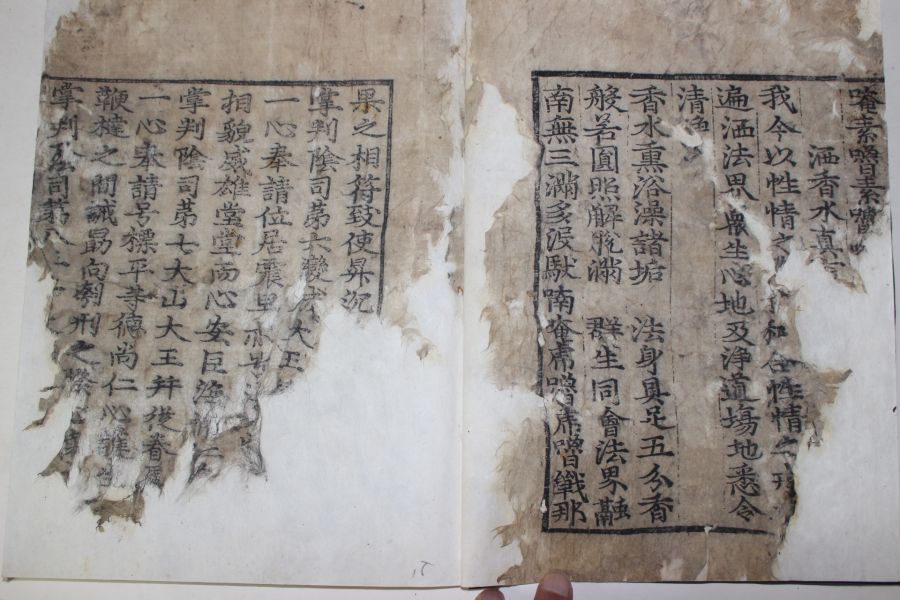 唵素嚕素嚕
洒香水真
我今以性情之 和合性情之
遍洒法界衆生心地及淨道場地悉令
清淨
香水熏浴澡諸垢 法身具足五分香
般若圓照解脫滿 群生同會法界融
南無三滿多沒馱喃唵席嚕席嚕戰那
果之相符致使昇沉
掌判陰司苐六變成大王
一心奉請位居震
相貌威雄堂堂而心安巨海
掌判陰司苐七大山大王幷從眷屬
一心奉請号標平等德尚仁心
鞭撻之間誡勗向 刑之
掌判 司苐八
15